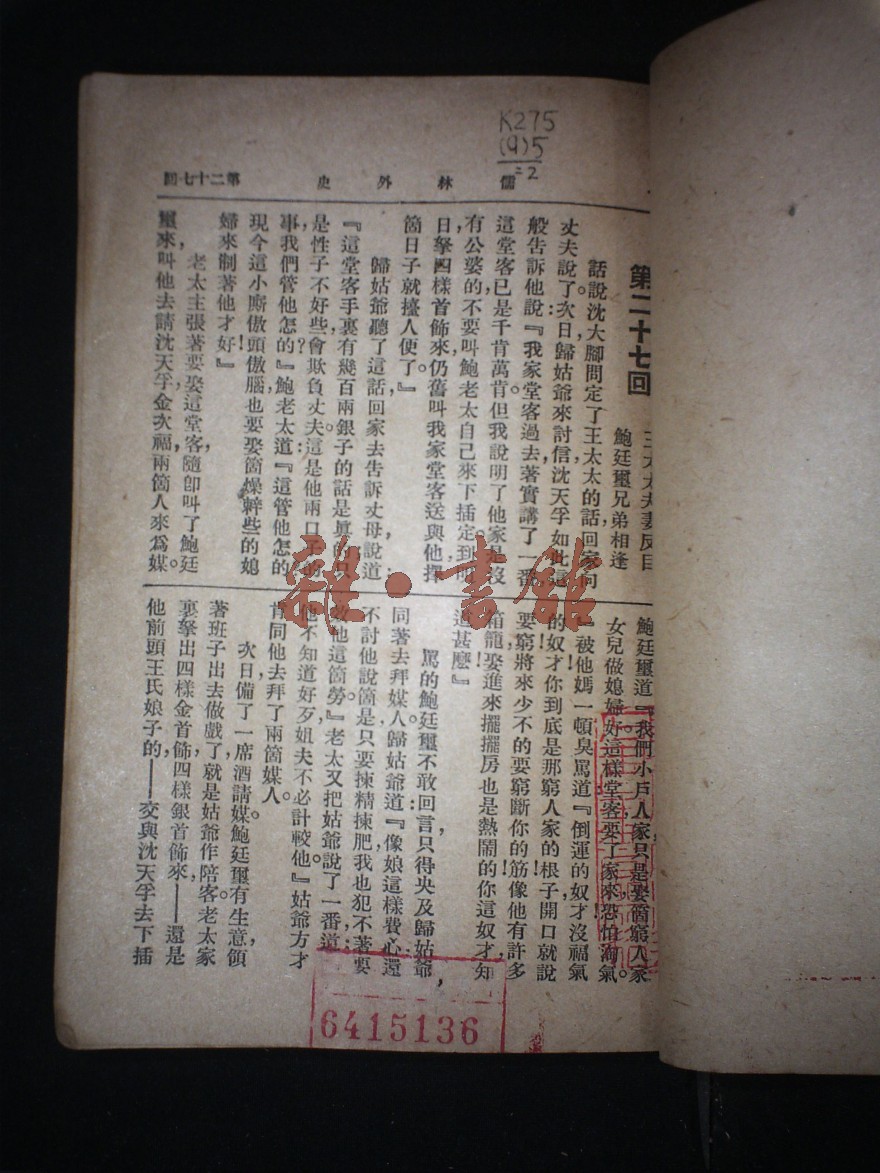 K275
(9)5
=2
儒林外史 第二十七回
第二十七回
王太太夫妻反目
鮑廷璽兄弟相逢
話說沈大腳問定了王太太的話，回家向
丈夫說了。次日歸姑爺來討信，沈天孚如此這
般告訴他說：『我家堂客過去，著實講了一番，
這堂客已是千肯萬肯。但我說明了他家是沒
有公婆的，不要叫鮑老太自己來下插定。到明
日拏四樣首飾來，仍舊叫我家堂客送與他，擇
箇日子就擡人便了。』
歸姑爺聽了這話，回家去告訴丈母說道：
『這堂客手裏有幾百兩銀子的話是眞的，只
是性子不好些，會欺負丈夫。這是他兩口子的
事，我們管他怎的？』鮑老太道：『這管他怎的！
現今這小廝傲頭傲腦，也要娶箇燥辣些的媳
婦來制著他才好！』
老太主張著要娶這堂客，隨卽叫了鮑廷
璽來，叫他去請沈天孚、金次福兩箇人來爲媒。
鮑廷璽道：『我們小戶人家，只是娶箇窮人家
女兒做媳婦好，這樣堂客，要了家來，恐怕淘氣。
』被他媽一頓臭罵道：『倒運的奴才！沒福氣
的奴才！你到底是那窮人家的根子，開口就說
要窮，將來少不的要窮斷你的筋！像他有許多
箱籠，娶進來擺擺房也是熱鬧的。你這奴才知
道甚麼！』
罵的鮑廷璽不敢回言，只得央及歸姑爺，
同著去拜媒人。歸姑爺道：『像娘這樣費心，還
不討他說箇是，只要揀精揀肥，我也犯不著要
效他這箇勞。』老太又把姑爺說了一番，道：
他不知道好歹，姐夫不必計較他。』姑爺方才
肯同他去拜了兩箇媒人。
次日備了一席酒請媒。鮑廷璽有生意，領
著班子出去做戲了，就是姑爺作陪客。老太家
裏拏出四樣金首飾、四樣銀首飾來——還是
他前頭王氏娘子的——交與沈天孚去下插
雜·書館
6415136